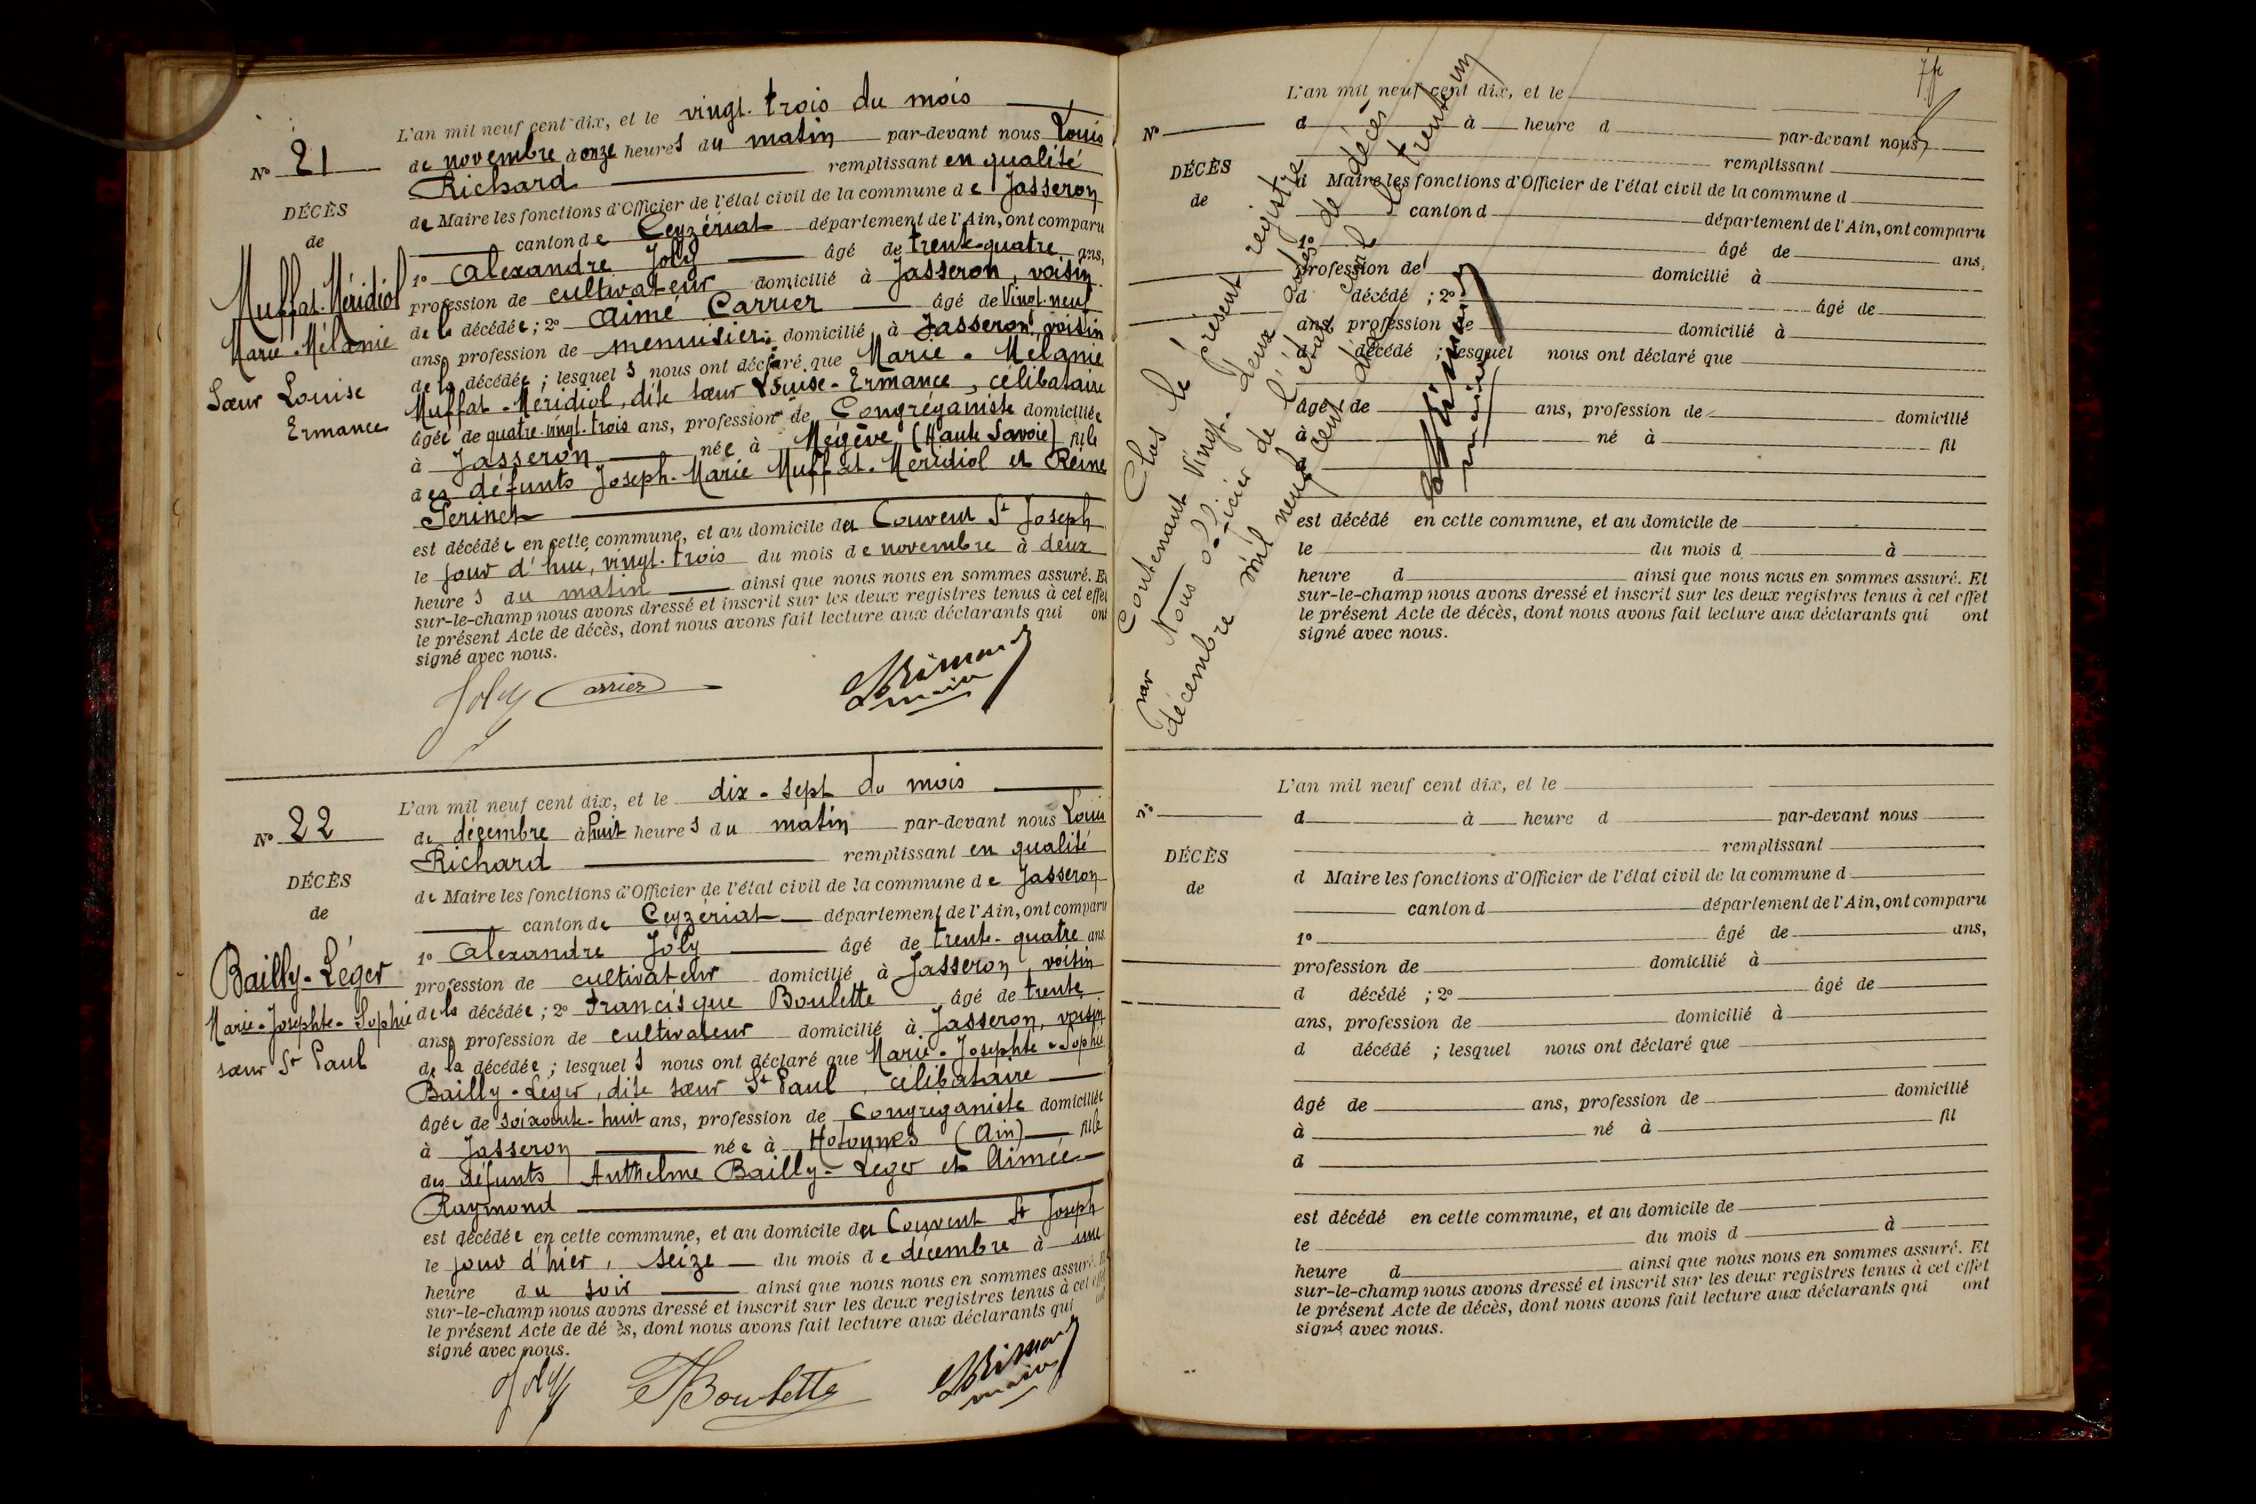 L'an mil neuf cent dix, et le vingt-trois du mois
N° 21
de novembre à onze heures du matin par-devant nous Louis
Richard remplissant en qualité
DÉCÈS
de Maire les fonctions d'Officier de l'état civil de la commune de Jasseron
de
canton de Ceyzériat département de l'Ain, ont comparu
1° Alexandre Joly âgé de trente-quatre ans,
Muffat-Méridiol
profession de cultivateur domicilié à Jasseron, voisin
de la décédée ; 2° Aimé Carrier âgé de Vingt-neuf
Marie-Mélanie
ans, profession de menuisier, domicilié à Jasseron, voisin
de la décédée ; lesquels nous ont déclaré que Marie-Mélanie
Sœur Louise
Muffat-Méridiol, dite sœur Louise-Ermance, célibataire
Ermance
âgée de quatre-vingt-trois ans, profession de Congréganiste domiciliée
à Jasseron née à Megève (Haute Savoie) fille
des défunts Joseph-Marie Muffat-Méridiol et Reine
Perinet
est décédée en cette commune, et au domicile du Couvent St Joseph
le jour d'hui, vingt-trois du mois de novembre à deux
heures du matin ainsi que nous nous en sommes assuré. Et
sur-le-champ nous avons dressé et inscrit sur les deux registres tenus à cet effet
le présent Acte de décès, dont nous avons fait lecture aux déclarants qui ont
signé avec nous.
Joly Carrier
maire
L'an mil neuf cent dix, et le dix-sept du mois
N° 22
de décembre à huit heures du matin par-devant nous Louis
Richard remplissant en qualité
DÉCÈS
de Maire les fonctions d'Officier de l'état civil de la commune de Jasseron
de
canton de Ceyzériat département de l'Ain, ont comparu
1° Alexandre Joly âgé de trente-quatre ans
Bailly-Léger
profession de cultivateur domicilié à Jasseron, voisin
Marie-Josephte-Sophie
de la décédée ; 2° Francisque Boulette âgé de trente
ans, profession de cultivateur domicilié à Jasseron, voisin
sœur St Paul
de la décédée ; lesquels nous ont déclaré que Marie-Josephte-Sophie
Bailly-Léger, dite sœur St Paul, célibataire
âgée de soixante-huit ans, profession de Congréganiste domiciliée
à Jasseron née à Hotonnes (Ain) fille
des défunts Anthelme Bailly-Léger et Aimée
Raymond
est décédée en cette commune, et au domicile du Couvent St Joseph
le jour d'hier, seize du mois de décembre à une
heure du soir ainsi que nous nous en sommes assuré. Et
sur-le-champ nous avons dressé et inscrit sur les deux registres tenus à cet effet
le présent Acte de décès, dont nous avons fait lecture aux déclarants qui ont
signé avec nous.
Joly Boulette
maire
L'an mil neuf cent dix, et le
N°
d à heure d par-devant nous
remplissant
DÉCÈS
d Maire les fonctions d'Officier de l'état civil de la commune d
de
canton d département de l'Ain, ont comparu
1° âgé de ans,
profession de domicilié à
d décédé ; 2° âgé de
ans, profession de domicilié à
d décédé ; lesquel nous ont déclaré que
âgé de ans, profession de domicilié
à né à fil
d
est décédé en cette commune, et au domicile de
le du mois d à
heure d ainsi que nous nous en sommes assuré. Et
sur-le-champ nous avons dressé et inscrit sur les deux registres tenus à cet effet
le présent Acte de décès, dont nous avons fait lecture aux déclarants qui ont
signé avec nous.
Clos le présent registre
Contenant Vingt-deux actes de décès
par Nous officier de l'état civil le trente un
décembre mil neuf cent dix
maire
L'an mil neuf cent dix, et le
N°
d à heure d par-devant nous
remplissant
DÉCÈS
d Maire les fonctions d'Officier de l'état civil de la commune d
de
canton d département de l'Ain, ont comparu
1° âgé de ans,
profession de domicilié à
d décédé ; 2° âgé de
ans, profession de domicilié à
d décédé ; lesquel nous ont déclaré que
âgé de ans, profession de domicilié
à né à fil
d
est décédé en cette commune, et au domicile de
le du mois d à
heure d ainsi que nous nous en sommes assuré. Et
sur-le-champ nous avons dressé et inscrit sur les deux registres tenus à cet effet
le présent Acte de décès, dont nous avons fait lecture aux déclarants qui ont
signé avec nous.